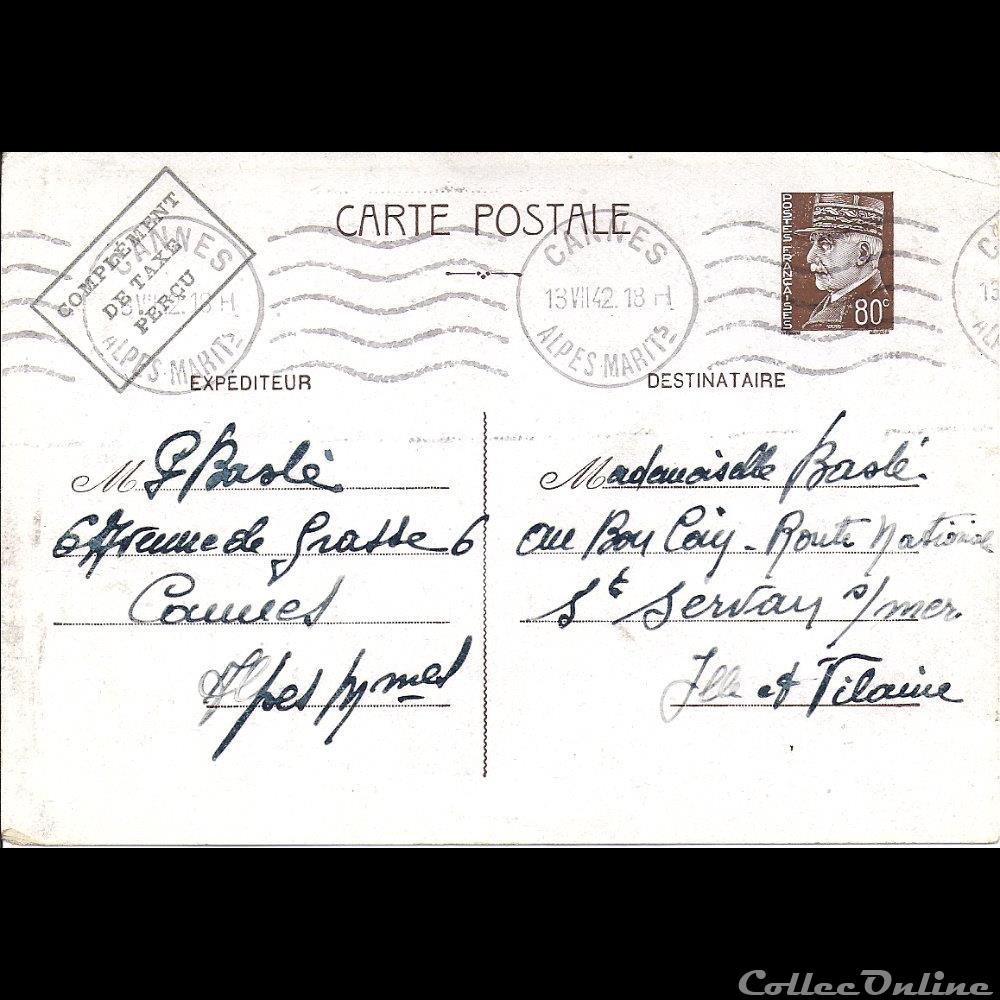 COMPLÉMENT
DE TAXE
PERÇU
CANNES
ALPES-MARIT^s
CARTE POSTALE
CANNES
13 VII 42. 18 H
ALPES-MARIT^s
POSTES FRANÇAISES
80^c
EXPÉDITEUR
M P Baslé
6 Avenue de Grasse 6
Cannes
Alpes Mmes
DESTINATAIRE
Mademoiselle Baslé.
au Bon Coin - Route Nationale
S^t Servan s/mer
Ille et Vilaine
CollecOnline